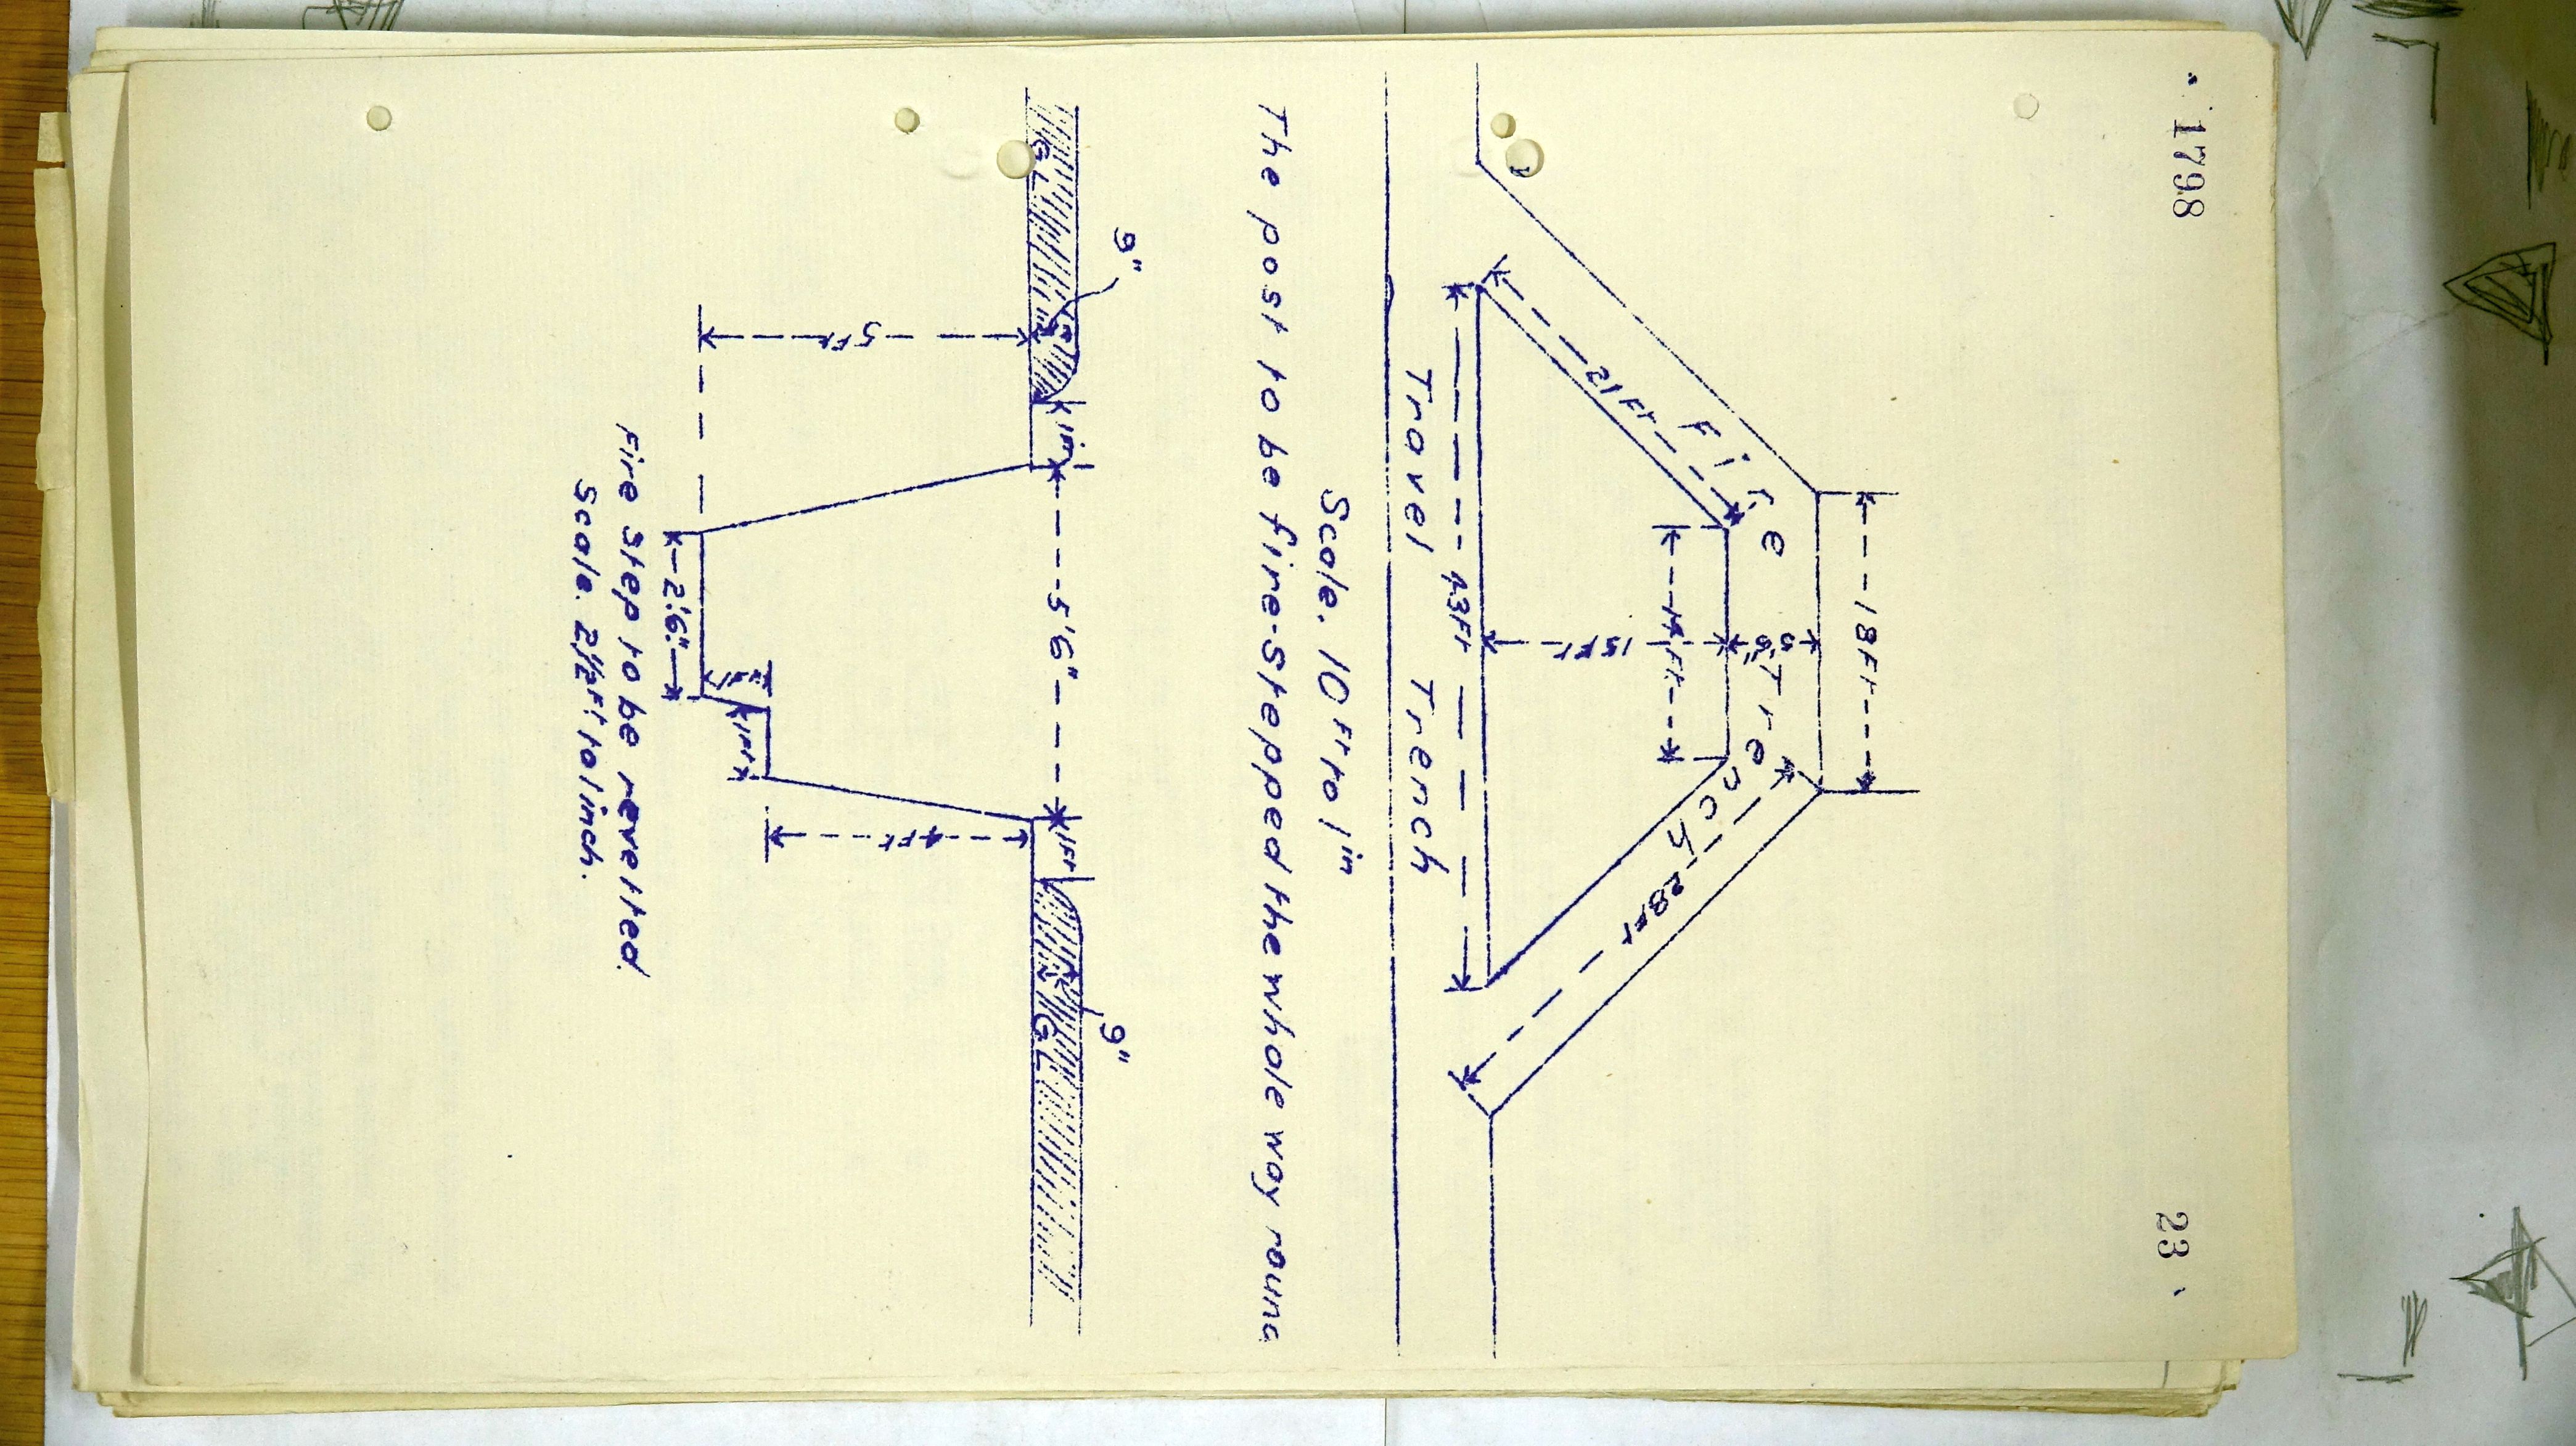 1798
23
18Ft
Fire Trench
5'6"
21Ft
28Ft
14 Ft
15Ft
43Ft
Travel Trench
Scale. 10 Ft to 1 in
The post to be fire-stepped the whole way round
9"
9"
GL
GL
1Ft
5'6"
1Ft
5Ft
4Ft
1Ft
2'6"
Fire Step to be revetted.
Scale. 2½Ft. to 1 inch.